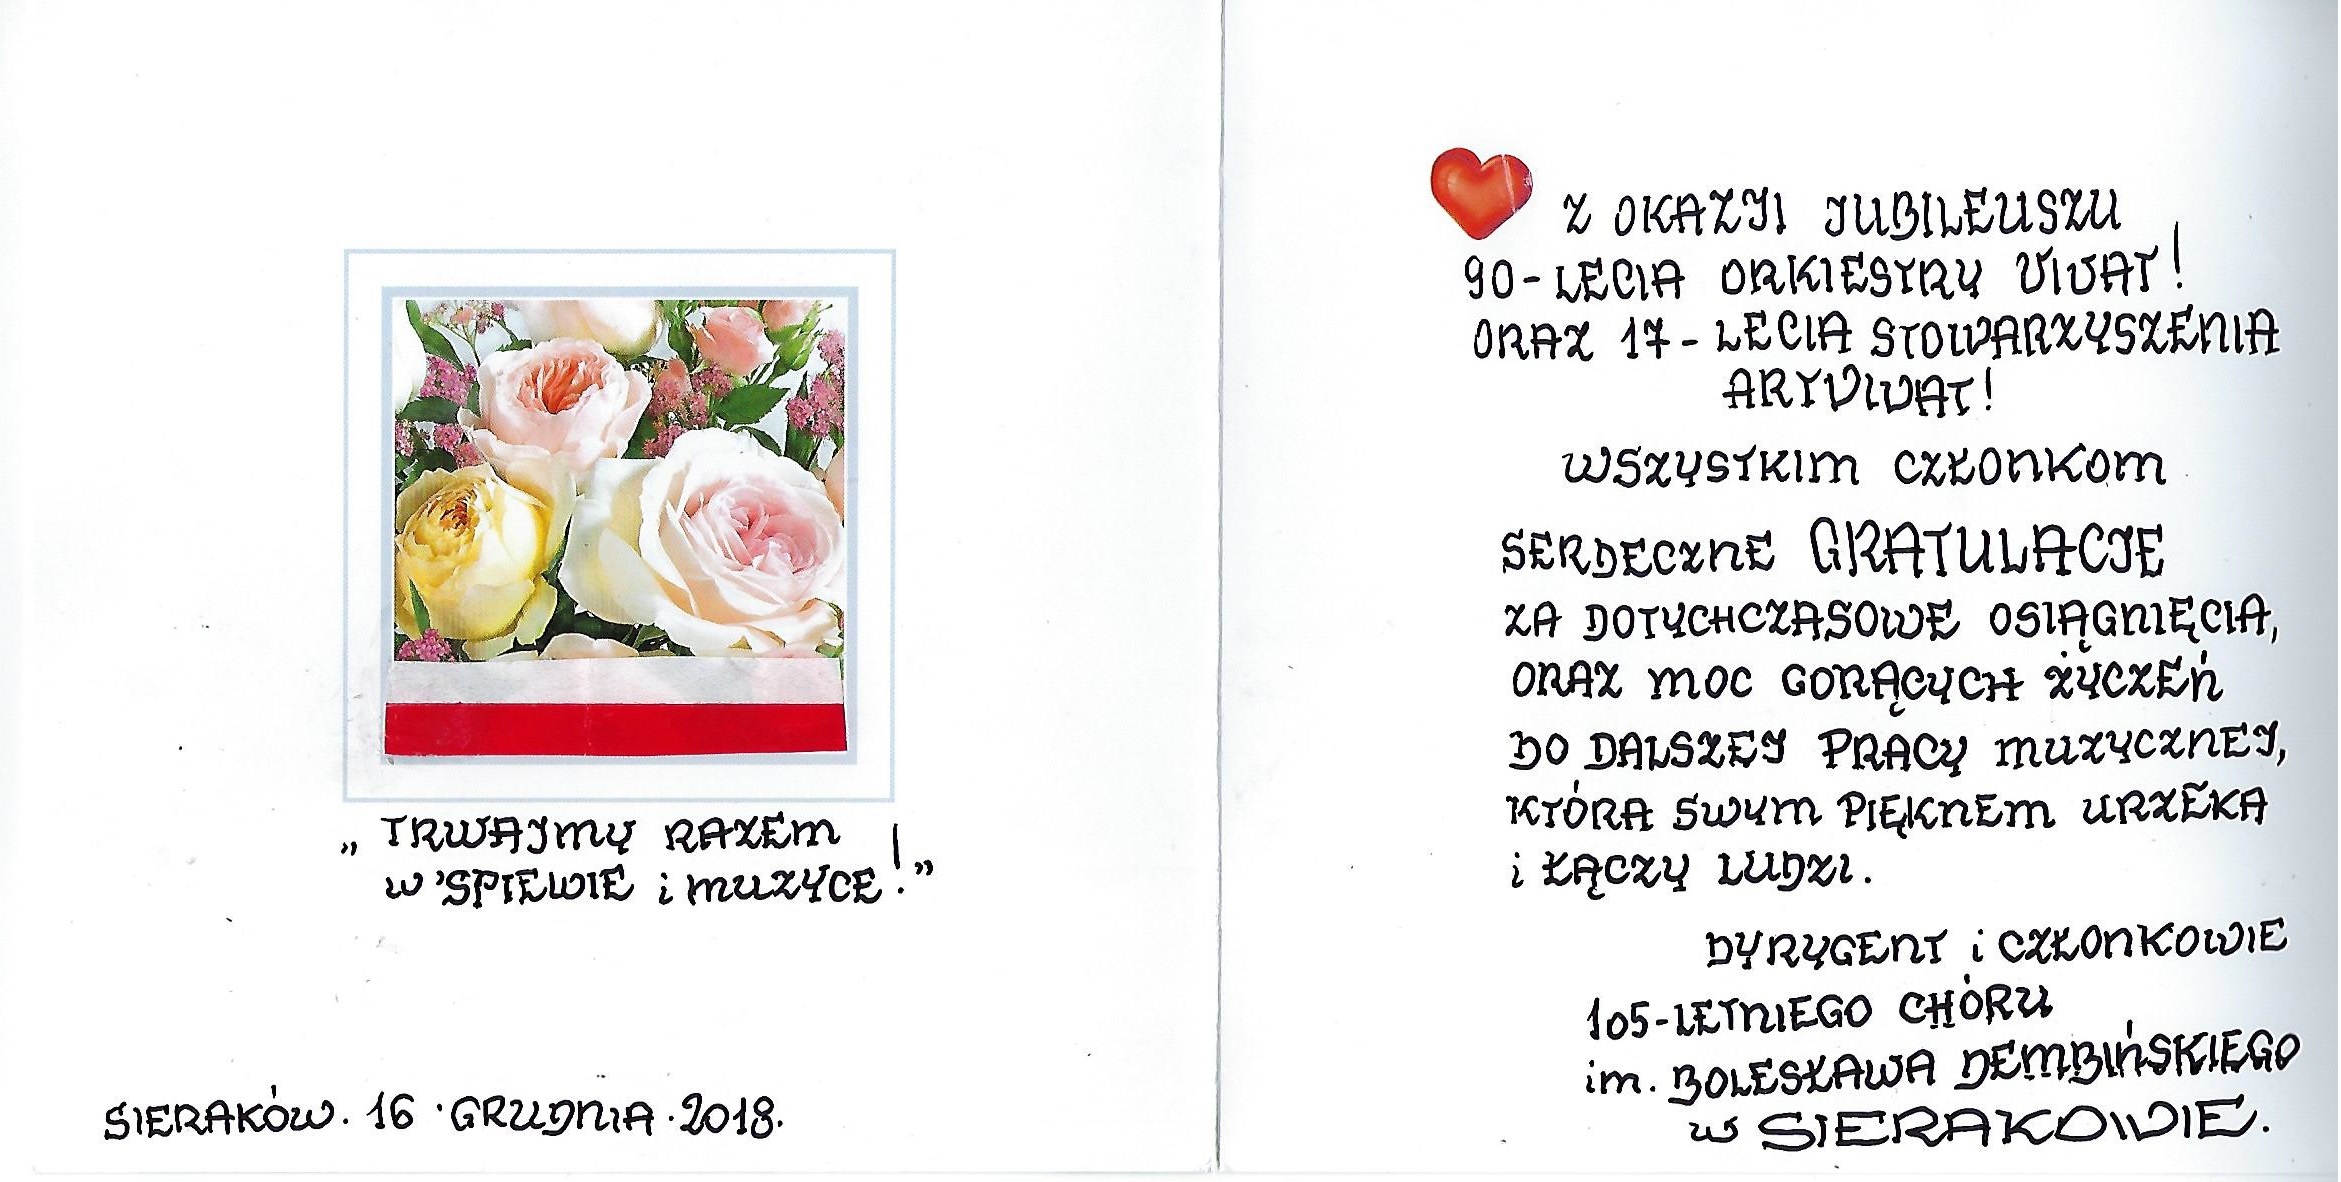 „TRWAJMY RAZEM
W ŚPIEWIE i MUZYCE!”
SIERAKÓW. 16 · GRUDNIA · 2018.
Z OKAZJI JUBILEUSZU
90-LECIA ORKIESTRY VIVAT!
ORAZ 17-LECIA STOWARZYSZENIA
ARTVIVAT!
WSZYSTKIM CZŁONKOM
SERDECZNE GRATULACJE
ZA DOTYCHCZASOWE OSIĄGNIĘCIA,
ORAZ MOC GORĄCYCH ŻYCZEŃ
DO DALSZEJ PRACY MUZYCZNEJ,
KTÓRA SWYM PIĘKNEM URZEKA
i ŁĄCZY LUDZI.
DYRYGENT i CZŁONKOWIE
105-LETNIEGO CHÓRU
im. BOLESŁAWA DEMBIŃSKIEGO
w SIERAKOWIE.